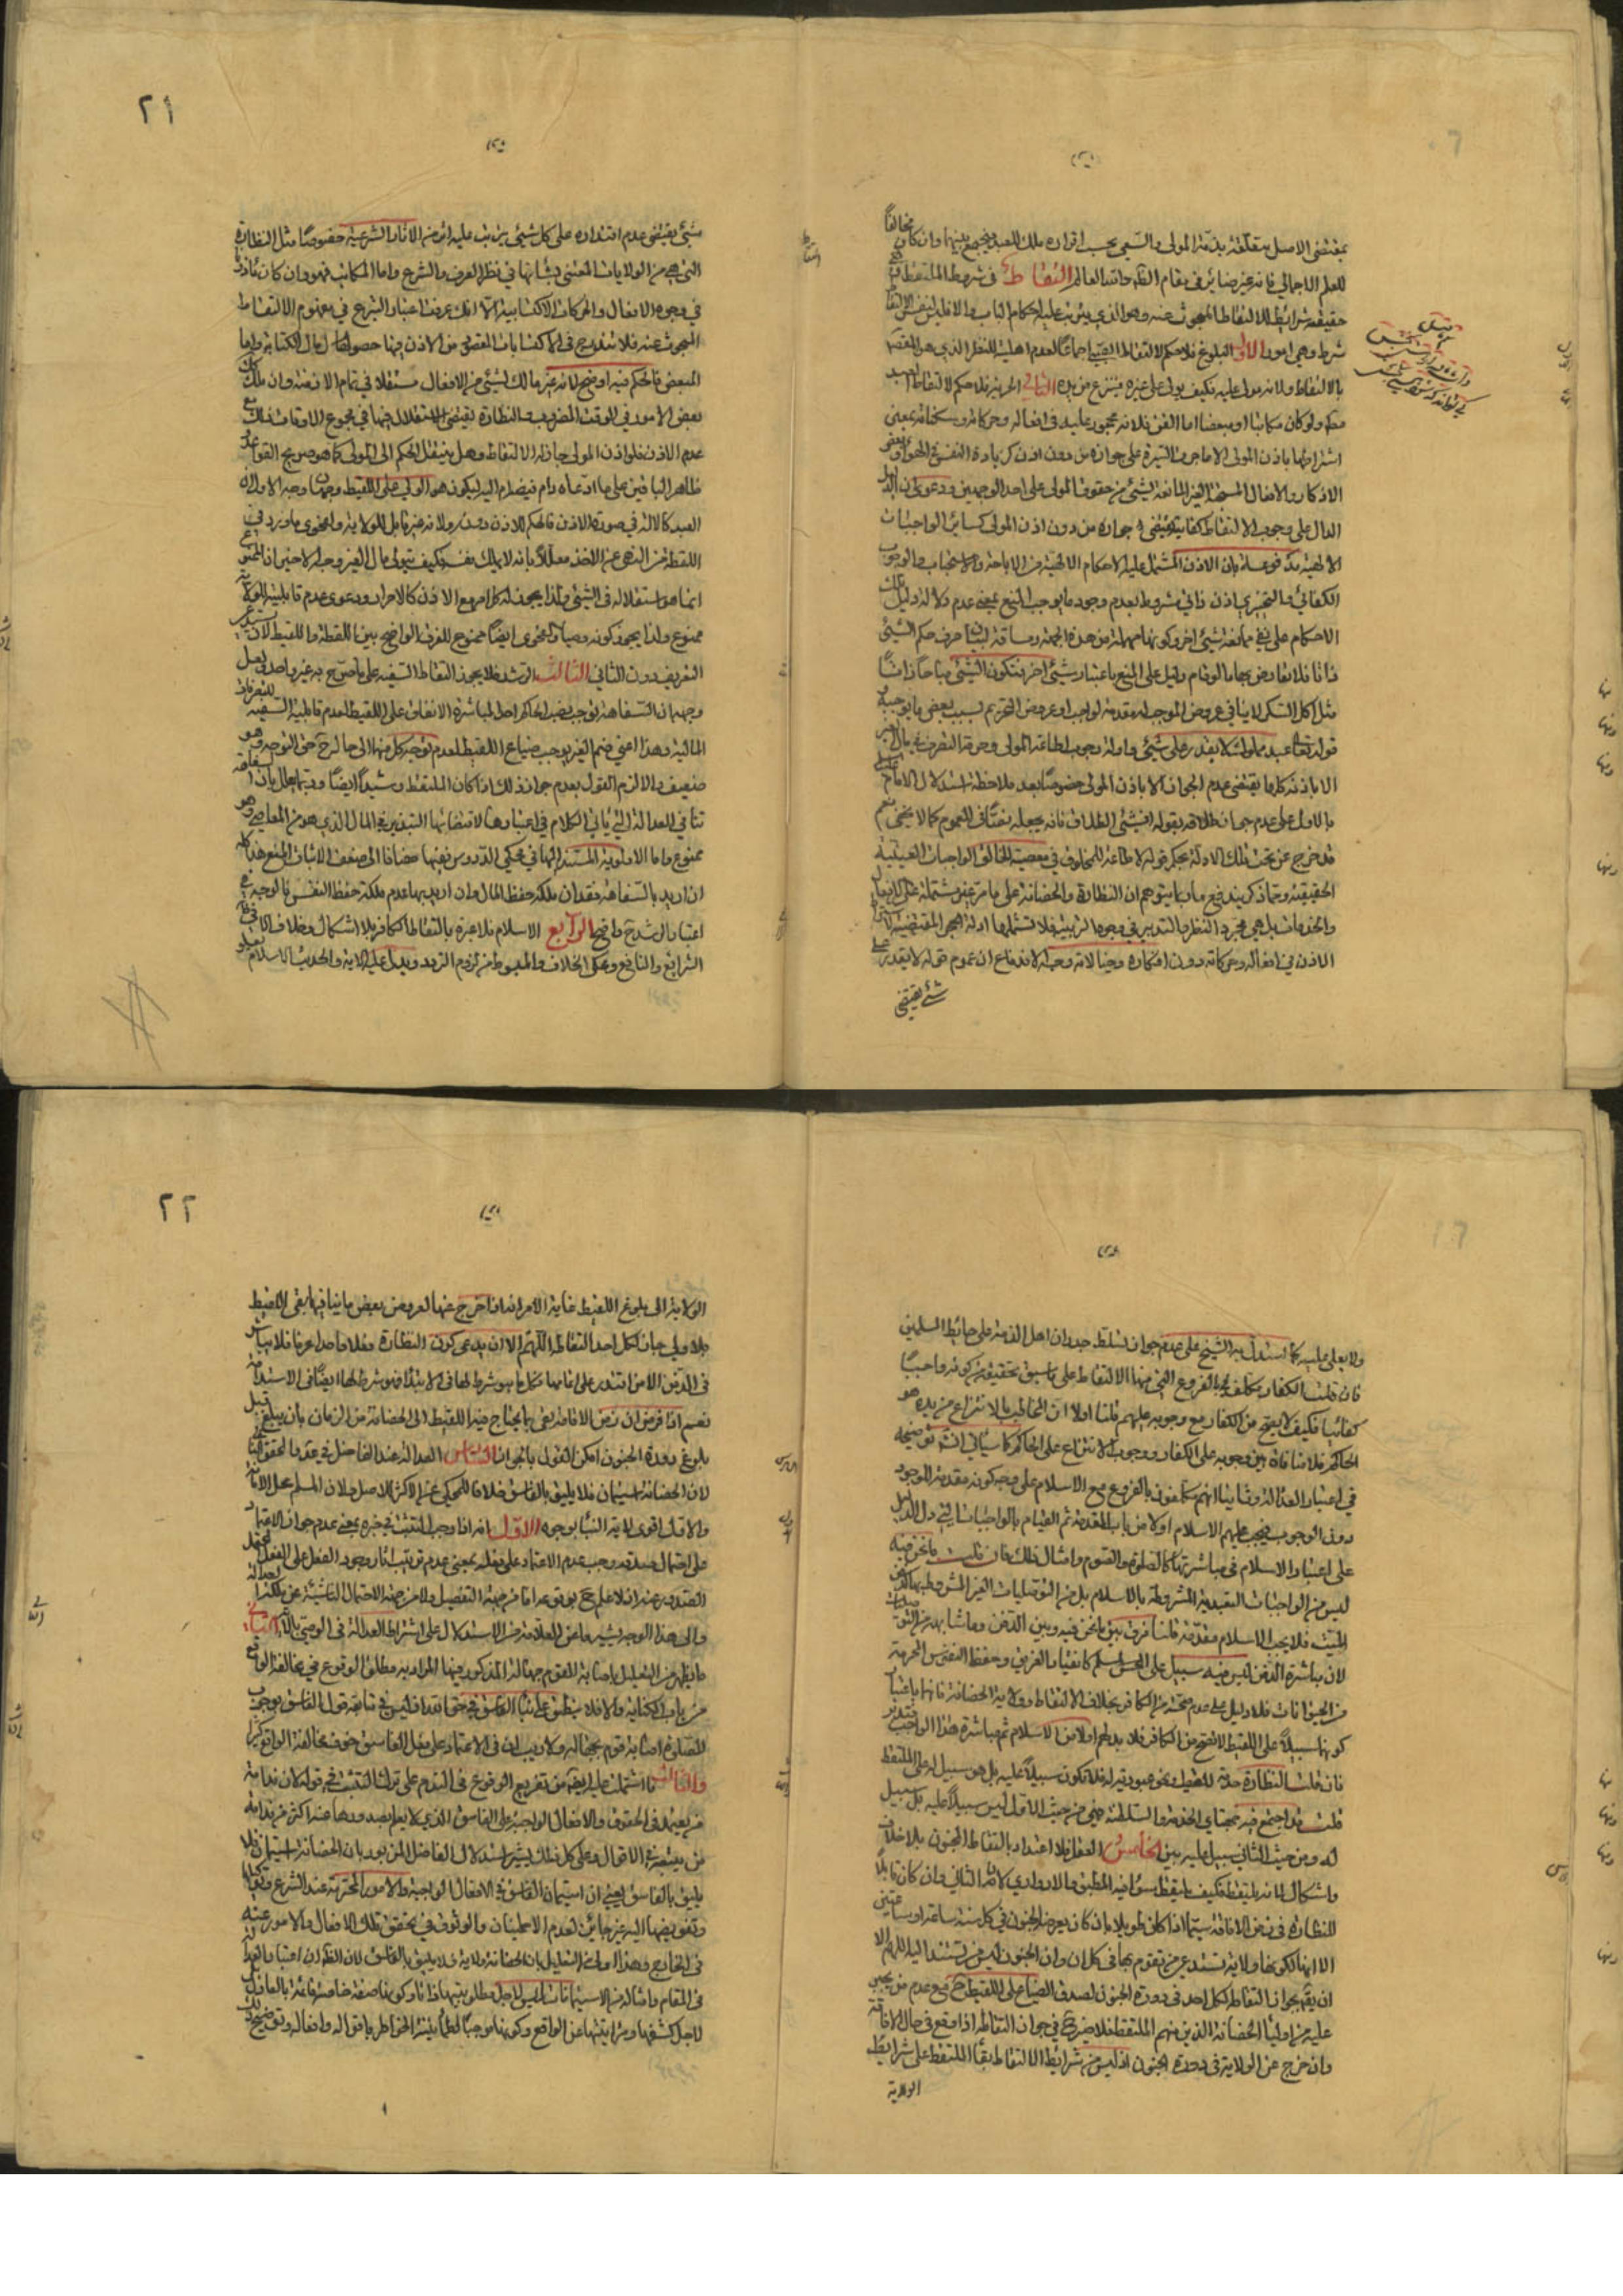 بمقتضى الاصل متعلقة بذمة المولى والسعي بحسب اقراره ملك للعبد فيجمع بينهما وان كان مخالفاً
للعلم الاجمالي فانه غير ضاير في مقام الظاهر والله العالم التقاط في شروط الملتقط
حقيقة شرايط الالتقاط المبحوث عنه وهو الذي يترتب عليه احكام الباب والا فليس لنفس الالتقاط
شرط وهي امور الاول البلوغ فلا حكم لالتقاط الصبي اجماعاً لعدم اهليته للنظر الذي هو المقصد
بالالتقاط ولانه مولى عليه فكيف يولى على غيره فينتزع من يده الثاني الحرية فلا حكم لالتقاط العبد
ولو كان مكاتبا او مبعضا اما القن فلانه محجور عليه في افعاله وحركاته وسكناته بمعنى
اشتراطها باذن المولى الا ما جرت السيرة على جوازه من دون اذن كزيادة النفس
الدال على وجوب الالتقاط كفاية مقتضى جوازه من دون اذن المولى كسائر الواجبات
الالهية مدفوعة بان الاذن المشتمل عليه الاحكام الالهية من الاباحة والاستحباب والوجوب
الكفائي والتخييري اذن ذاتي مشروط بعدم وجود ما يوجب المنع بمعنى عدم دلالة دليل تلك
الاحكام على نفي ممانعة شيئ اخر وكونها مهملة من هذه الجهة ومساقة لبيان صرف حكم الشيئ
ذاتا فلا تعارض بها ما لو قام دليل على المنع باعتبار شيئ اخر فتكون الشيئ مباحاً ذاتاً
مثل اكل السكر لا ينافي عروض الموجب له مقدمة لواجب او عروض التحريم لسبب بعض ما يوجبه
قوله تعالى عبد مملوك لا يقدر على شيئ وادلة وجوب اطاعة المولى وحرمة التصرف في مال الغير
الا باذنه كلها يقتضي عدم الجواز الا باذن المولى خصوصاً بعد ملاحظة استدلال الامام
بالاول على عدم جواز طلاقه بقوله افشيئ الطلاق فانه يجعله نصّاً في العموم كما لا يخفى نعم
قد خرج عن تحت تلك الادلة بحكم قوله لا طاعة للمخلوق في معصية الخالق الواجبات العينية
الحقيقية ومما ذكر يندفع ما ربما يتوهم ان النظارة والحضانة على ما مر غير مشتملة على الافعال
والخدمات بل هي مجرد النظر والتدبير في وجوه التربية فلا تشملها ادلة الحجر المقتضية
الاذن في افعاله وحركاته دون افكاره وخيالاته وجه الاندفاع ان عموم قوله لا يقدر على
شيئ يقتضي
٢١
شيئ يقتضي عدم اقتداره على كل شيئ يترتب عليه اثر من الاثار الشرعية خصوصاً مثل النظارة
التي هي من الولايات المعتنى بشانها في نظر العرف والشرع واما المكاتب فهو وان كان
في وجوه الافعال والحركات الاكتسابية الا انك عرفت اعتبار التبرع في مفهوم الالتقاط
المبحوث عنه فلا يندرج في الاكتسابات المعفو من الاذن فيها حصول مال الكتابة واما
المبعض فالحكم فيه اوضح لانه غير مالك لشيئ من الافعال مستقلا في تمام الازمنة وان ملك
بعض الامور في الوقت المضروب والنظارة تقتضي الاستقلال فيها في مجموع الاوقات فتلك مع
عدم الاذن فلو اذن المولى جاز له الالتقاط وهل ينتقل الحكم الى المولى كما هو صريح القواعد
ظاهر الباقين على ما ادعاه دام فيضه ام اليه ليكون هو الولي على اللقيط وجهان وجه الاول ان
العبد كالآلة في صورة الاذن فالحكم للاذن دونه ولانه غير قابل للولاية والفحوى ما ورد في
اللقطة من النهي عن اللقط معللاً بانه لا يملك نفسه فكيف يتولى مال الغير وجه الاخير ان الممنوع
انما هو استقلاله في الشيئ ولذا يجوز له كل امر مع الاذن كالاحرار ودعوى عدم قابلية الولاية
ممنوع ولذا يجوز كونه وصياً والفحوى ايضاً ممنوع للفرق الواضح بين اللقطة واللقيط لان
التعريف دون الثاني الثالث الرشد فلا يجوز التقاط السفيه على ما صرح به غير واحد ولعل
وجهه ان السفاهة توجب ضم الحاكم احداً لمباشرة الانفاق على اللقيط لعدم قابلية السفيه للتصرفات
المالية وهذا اعني ضم الغير يوجب ضياع اللقيط لعدم توجه كل منهما الى حاله حق التوجه وهو
ضعيف والا لزم القول بعدم جواز ذلك اذا كان الملتقط رشيداً ايضاً وربما يعلل بان السفاهة
تنافي العدالة التي ياتي الكلام في اعتبارها لاقتضائها التبذير في المال الذي هو من المعاصي وهو
ممنوع واما الاولوية المستند اليها في محكي الدروس ففيها مضافا الى ضعف الاثبات المنع هذا كله
ان اريد بالسفاهة فقدان ملكة حفظ المال وان اريد بها عدم ملكة حفظ النفس فالوجه في
اعتبار الرشد ح واضح الرابع الاسلام فلا عبرة بالتقاط الكافر بلا اشكال وخلاف
الشرايع والنافع ومحكى الخلاف والمبسوط من لزوم التردد ويدل عليه الاية والحديث الاسلام يعلو
ولا يعلى عليه كما استدل به الشيخ على عدم جواز تسلط جدران اهل الذمة على حائط المسلمين
فان قلت الكفار مكلفون بالفروع التي منها الالتقاط على ما سبق تحقيقه من كونه واجباً
كفائيا فكيف لا يصح من الكفار مع وجوبه عليهم قلنا اولا ان المخاطب بالانتزاع من يده هو
الحاكم فلا منافاة بين وجوبه على الكفار ووجوب الانتزاع على الحاكم كما سيأتي توضيحه
في اعتبار العدالة وثانيا انهم مكلفون بالفروع مع الاسلام على وجه كونه مقدمة للوجود
دون الوجوب فيجب عليهم الاسلام اولا من باب المقدمة ثم القيام بالواجبات التي دل الدليل
على اعتبار الاسلام في مباشرتها كالصلوة والصوم وامثال ذلك فان قلت ما نحن فيه
ليس من الواجبات التعبدية المشروطة بالاسلام بل من التوصليات الغير المشروطة بها كدفن
الميت فلا يجب الاسلام مقدمة قلنا فرق بين ما نحن فيه وبين الدفن وما شابهه من التوصليات
لان مباشرة الدفن ليس فيه سبيل على المسلم كانقياد الغريق وحفظ النفوس المحرمة
من الحيوانات فلا دليل على عدم صحته من الكافر بخلاف الالتقاط وولاية الحضانة فانها باعتبار
كونها سبيلاً على اللقيط لا تصح من الكافر فلا بد لهم اولا من الاسلام ثم مباشرة هذا الواجب فتدبر
فان قلت النظارة خدمة للطفل ونحو عبودية له فلا تكون سبيلاً عليه بل هو سبيل له على الملتقط
قلت قد اجتمع فيه جهتا الخدمة والسلطنة فمن حيث الاول ليس سبيلاً عليه بل سبيل
له ومن حيث الثاني سبيل عليه بين الخامس العقل فلا اعتداد بالتقاط المجنون بلا خلاف
واشكال لانه يلتقط فكيف يلتقط سواء فيه المطبق والادواري لان الثاني وان كان قابلاً
للنظارة في زمن الافاقة سيما اذا كان طويلا بان كان يعرضه الجنون في كل سنة ساعة او ساعتين
الا انها لكونها ولاية تستدعي من يقوم بها في كل ان وان المجنون ليس من تستند اليه اللهم الا
ان يقال بجواز التقاطه لكل احد في دورة الجنون لصدق الضياع على اللقيط ح مع عدم من يجب
عليه من اولياء الحضانة الذين منهم الملتقط فلا ضير ح في جواز التقاطه اذا وقع في حال الافاقة
وان خرج عن الولاية في دورة الجنون اذ ليس من شرايط الالتقاط بقاء الملتقط على شرايط
الولاية
٢٢
الولاية الى بلوغ اللقيط غاية الامر انه اذا خرج عنها لعروض بعض ما ينافيها بقي اللقيط
بلا ولي جاز لكل احد التقاطه اللهم الا ان يدعى كون النظارة فعلا واحدا عرفا فلا يباشر
في الدقن الا من اقتدر على اتمامها فكل ما هو شرط لها في الابتداء فهو شرط لها ايضاً في الاستدامة
نعم اذا فرض ان زمن الافاقة يفي بما يحتاج فيه اللقيط الى الحضانة من الزمان بان يبلغ قبل
بلوغ دورة الجنون امكن القول بالجواز السادس العدالة عند الفاضل في عد والمحقق الثاني
لان الحضانة استيمان فلا يليق بالفاسق خلافا للمحكي عن الاكثر للاصل ولان المسلم محل الامانة
والاول اقوى لاية النبأ بوجوه الاول انه اذا وجب التثبت في خبره بمعنى عدم جواز الاعتماد
على احتمال صدقه وجب عدم الاعتماد على فعله بمعنى عدم ترتيب اثار وجود الفعل على الفعل المحتمل
الصدور عنه اذ لا علم ح بوقوعه اما من جهة التفصيل ولا من جهة الاحتمال الناشئة عن ملكة العدالة
والى هذا الوجه يشير ما عن العلامة من الاستدلال على اشتراط العدالة في الوصي بالاية الثاني
ما يظهر من التعليل باصابة القوم جهالة المذكور فيها المراد به مطلق الوقوع في مخالفة الواقع
من باب الكناية والا فلا ينطبق على نبأ الفاسق في حق اقد اذ ليس في متابعة قول الفاسق بوجوب
الصلوة اصابة قوم بجهالة ولا ريب ان في الاعتماد على فعل الفاسق خوف مخالفة الواقع كثيرا
والثالث ما اشتملت عليه الاية من تفريع الوقوع في الندم على ترك التثبت في قوله لان ندامة
من يعتمد في الحقوق والافعال الواجبة على الفاسق الذي لا يعلم بصدورها عنه اكثر من ندامة
من يعتمد في الاقوال وعلى كل ذلك يشير استدلال الفاضل المزبور بان الحضانة استيمان فلا
يليق بالفاسق يعني ان استيمان الفاسق في الافعال الواجبة والامور المحترمة عند الشرع
وتفويضها اليه غير جائز لعدم الاطمينان والوثوق في تحقق تلك الافعال والامور عنه
في الخارج وهذا اولى من التعليل بان الحضانة ولاية فلا يليق بالفاسق لان الظاهر ان اعتبار
في المقام وامثاله من الاستيمانات ليس لاجل مطلوبيتها ذاتا وكونها صفة خاصة قائمة بالعادل
لاجل كشفها ومرآتيتها عن الواقع وكونها موجباً لطمأنينة الخواطر باقواله وافعاله وتوضيح